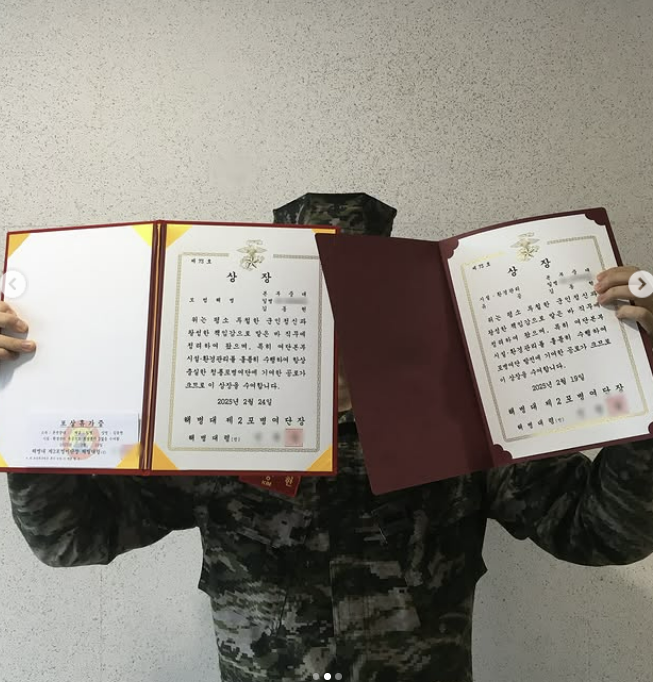 포상휴가증
해병대 제2
제 75 호
상 장
본 부 중 대
모 범 해 병
일병
김
위는 평소 투철한 군인정신과
왕성한 책임감으로 맡은 바 직무에
정려하여 왔으며, 특히 여단본부
시설·환경관리를 훌륭히 수행하여 항상
충실한 청룡모병여단에 기여한 공로가
크므로 이 상장을 수여합니다.
2025년 2월 24일
해 병 대 제 2 모 병 여 단 장
해 병 대 령
상 장
본 부 중 대
시설·환경관리
일병
유 공
김
위는 평소 투철한 군인정신과
왕성한 책임감으로 맡은 바 직무에
정려하여 왔으며, 특히 여단본부
시설·환경관리를 훌륭히 수행하여
모병여단 발전에 기여한 공로가 크므로
이 상장을 수여합니다.
2025년 2월 19일
해 병 대 제 2 모 병 여 단 장
해 병 대 령
현